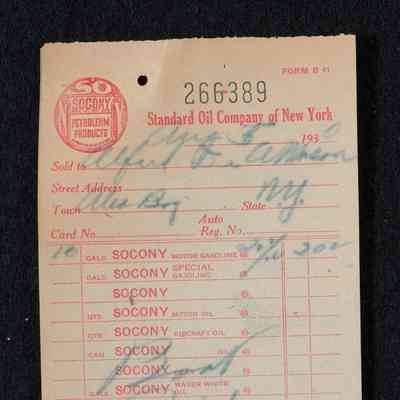 FORM B 41
SO
SOCONY
PETROLEUM
PRODUCTS
266389
Standard Oil Company of New York
193
Sold to Alfred
Street Address
Town Alex Bay State N.Y.
Auto
Card No. Reg. No.
10 GALS. SOCONY MOTOR GASOLINE @ 20 200
GALS. SOCONY SPECIAL GASOLINE @
SOCONY @
QTS. SOCONY MOTOR OIL @
QTS. SOCONY AIRCRAFT OIL @
CAN SOCONY OIL @
SOCONY
SOCONY WATER WHITE